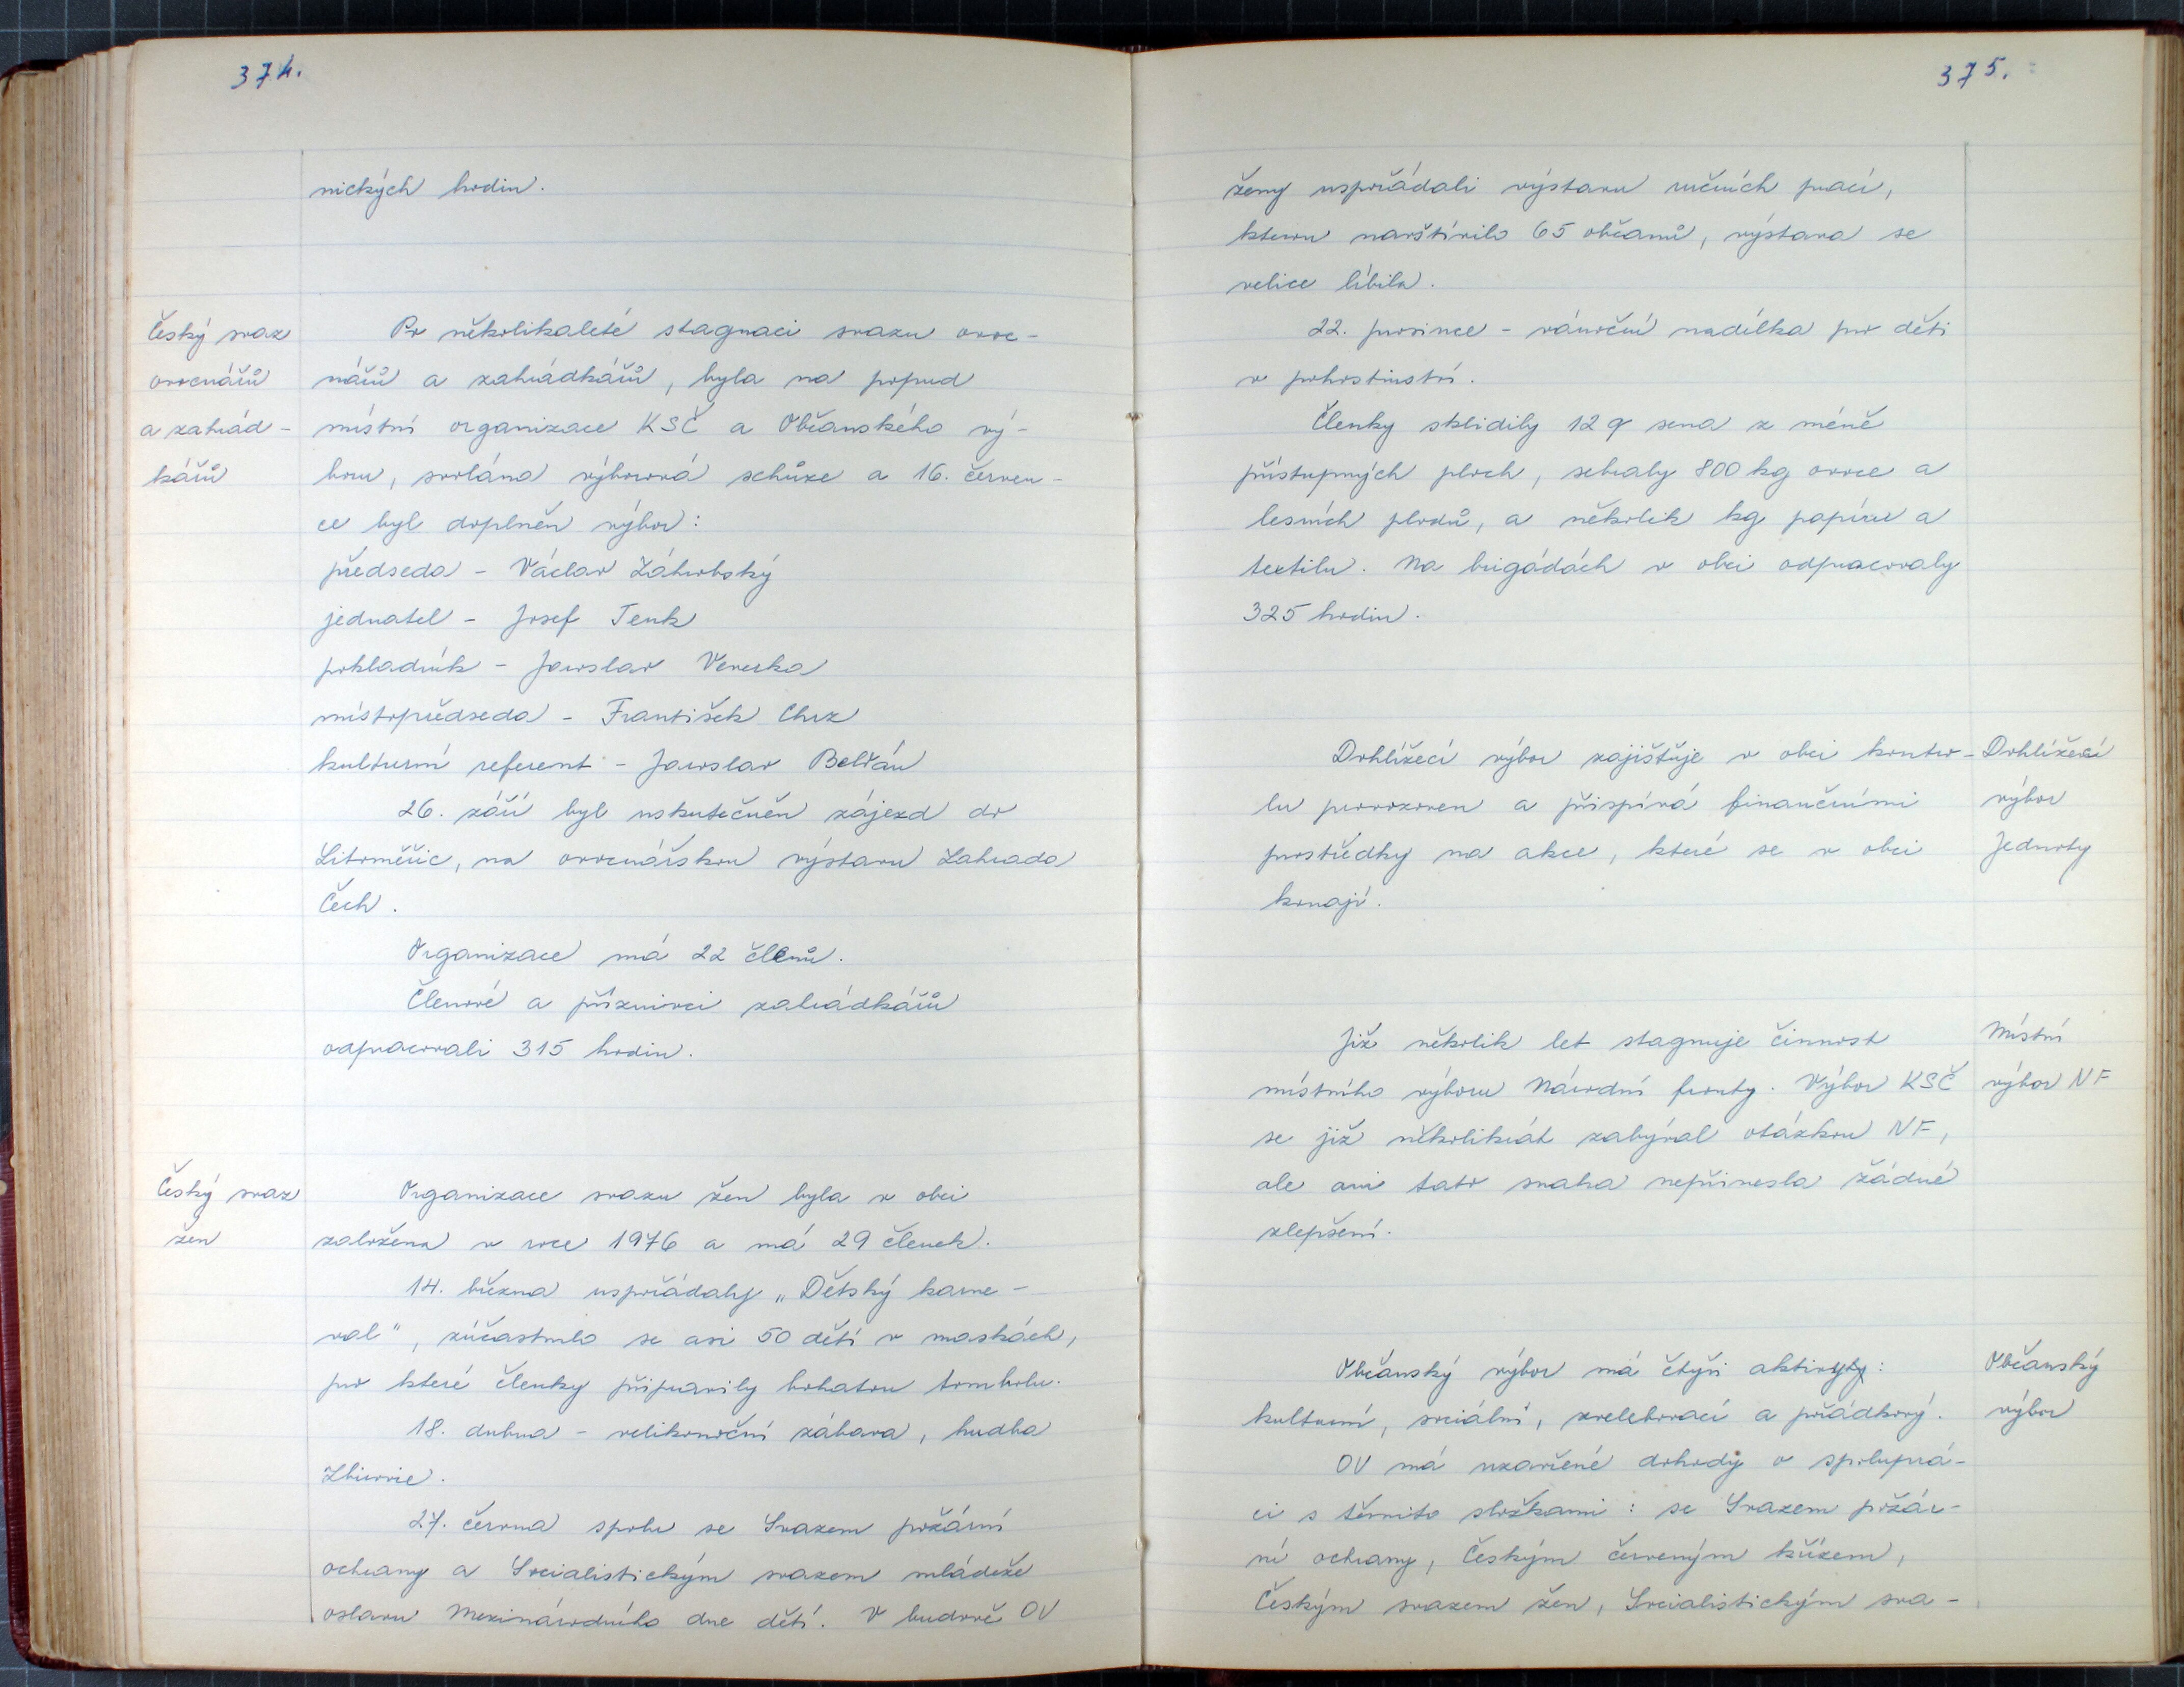 374.
nických hodin.
Český svaz
ovocnářů
a zahrád-
kářů
Po několikaleté stagnaci svazu ovoc-
nářů a zahrádkářů, byla na popud
místní organizace KSČ a Občanského vý-
boru, svolána výborová schůze a 16. červen-
ce byl doplněn výbor:
předseda - Václav Záhrobský
jednatel - Josef Tenk
pokladník - Jaroslav Veverka
místopředseda - František Chrz
kulturní referent - Jaroslav Beldán
26. září byl uskutečněn zájezd do
Litoměřic, na ovocnářskou výstavu Zahrada
Čech.
Organizace má 22 členů.
Členové a příznivci zahrádkářů
odpracovali 315 hodin.
Český svaz
žen
Organizace svazu žen byla v obci
založena v roce 1976 a má 29 členek.
14. března uspořádaly „Dětský karne-
val", zúčastnilo se asi 50 dětí v maskách,
pro které členky připravily bohatou tombolu.
18. dubna - velikonoční zábava, hudba
Zbirovie.
27. června spolu se Svazem požární
ochrany a Socialistickým svazem mládeže
oslavu Mezinárodního dne dětí. V budově OV
375.
ženy uspořádali výstavu ručních prací,
kterou navštívilo 65 občanů, výstava se
velice líbila.
22. prosince - vánoční nadílka pro děti
v pohostinství.
Členky sklidily 12 q sena z méně
přístupných ploch, sebraly 800 kg ovoce a
lesních plodů, a několik kg papíru a
textilu. Na brigádách v obci odpracovaly
325 hodin.
Dohlížecí výbor zajišťuje v obci kontro-
lu provozoven a přispívá finančními
prostředky na akce, které se v obci
konají.
Dohlížecí
výbor
Jednoty
Již několik let stagnuje činnost
místního výboru Národní fronty. Výbor KSČ
se již několikrát zabýval otázkou NF,
ale ani tato snaha nepřinesla žádné
zlepšení.
Místní
výbor NF
Občanský výbor má čtyři aktivyty:
kulturní, sociální, zvelebovací a pořádkový.
OV má uzavřené dohody o spoluprá-
ci s těmito složkami: se Svazem požár-
ní ochrany, Českým červeným křížem,
Českým svazem žen, Socialistickým sva-
Občanský
výbor